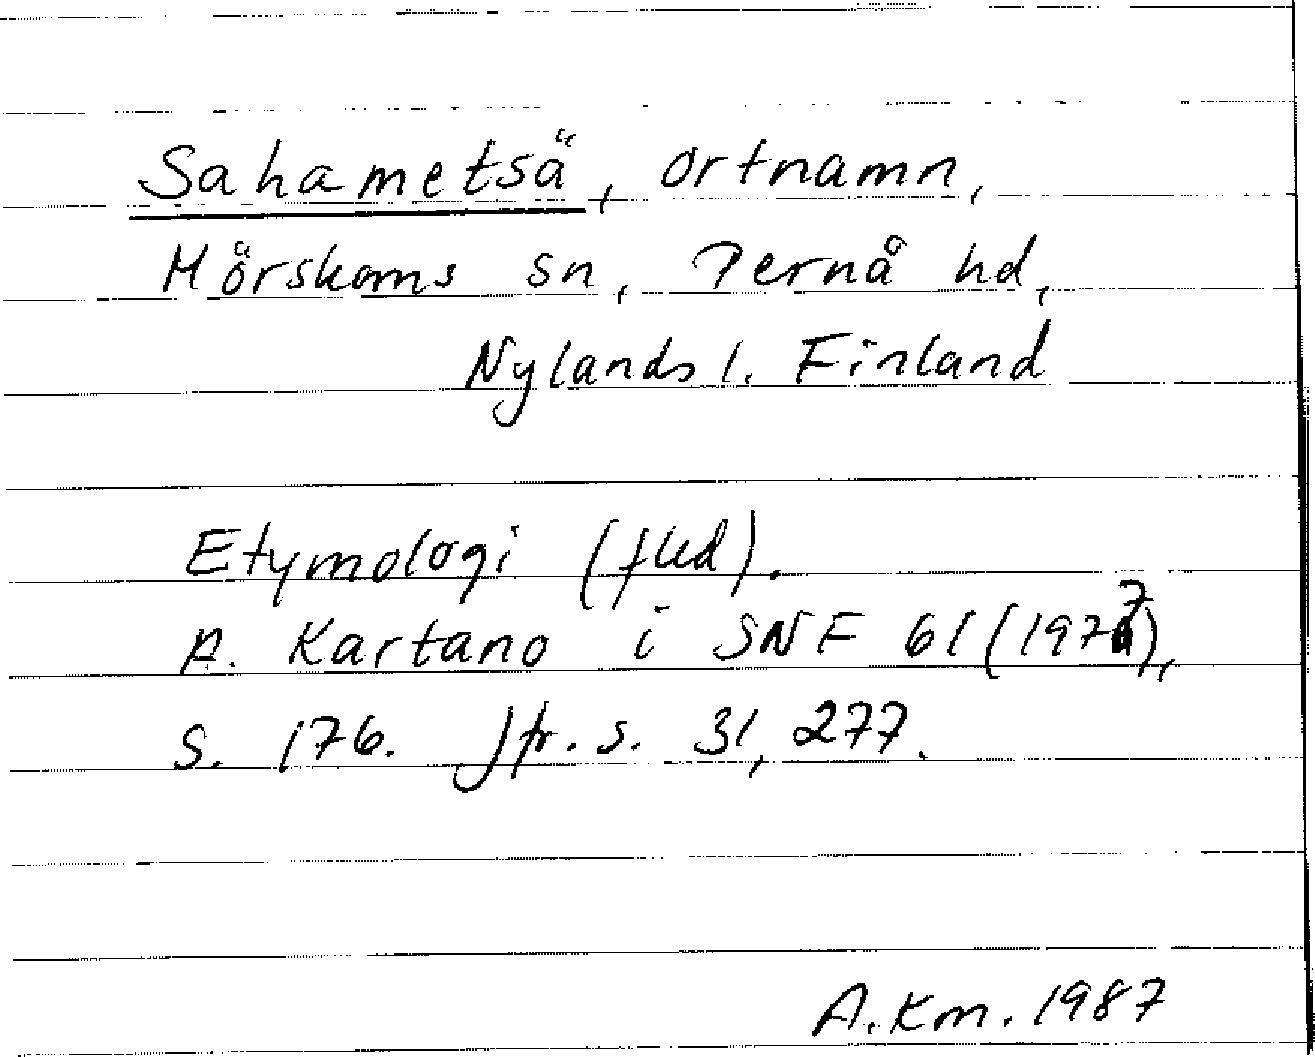 Sahametsä, ortnamn,
Mörskoms sn, Pernå hd,
Nylands l. Finland
Etymologi (fled).
A. Kartano i SNF 61 (1977),
s. 176. Jfr. s. 31, 277.
A.Km. 1987